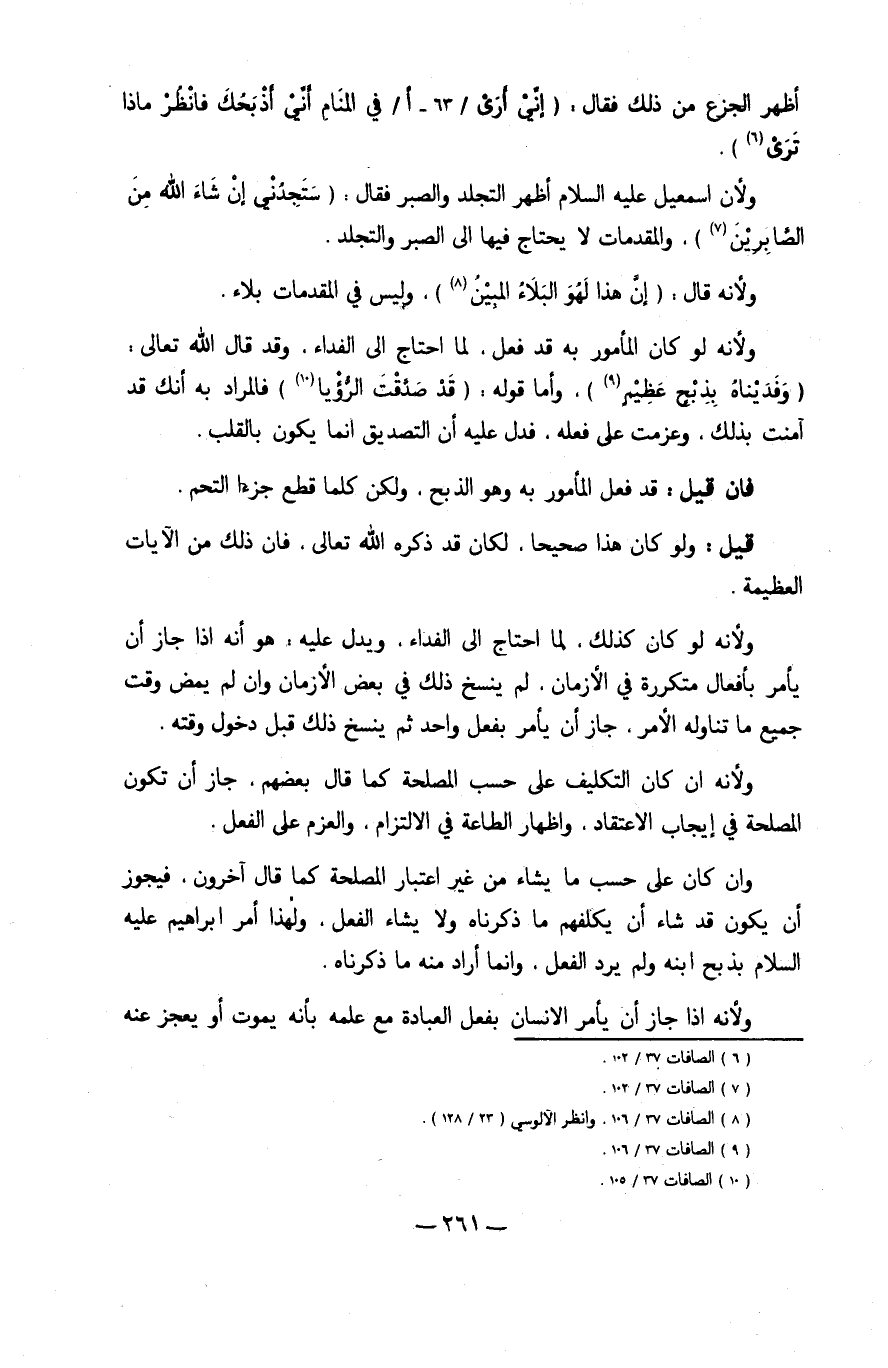 أظهر الجزع من ذلك فقال : ( إنِّيْ أَرَىْ / ٦٣ ـ أ / في المنَامِ أَنِّيْ أَذْبَحُكَ فانْظُرْ ماذا
تَرَىْ(٦) ) .
ولأن اسمعيل عليه السلام أظهر التجلد والصبر فقال : ( سَتَجِدُنْي إنْ شَاءَ الله مِنَ
الصَّابِرِيْنَ(٧) ) ، والمقدمات لا يحتاج فيها الى الصبر والتجلد .
ولأنه قال : ( إنَّ هذا لَهُوَ البَلَاءُ المبِيْنُ(٨) ) ، وليس في المقدمات بلاء .
ولأنه لو كان المأمور به قد فعل ، لما احتاج الى الفداء ، وقد قال الله تعالى :
( وَفَدَيْناهُ بِذِبْحٍ عَظِيْمٍ(٩) ) ، وأما قوله : ( قَدْ صَدَّقْتَ الرُّؤْيا(١٠) ) فالمراد به أنك قد
آمنت بذلك ، وعزمت على فعله ، فدل عليه أن التصديق انما يكون بالقلب .
فان قيل : قد فعل المأمور به وهو الذبح ، ولكن كلما قطع جزءا التحم .
قيل : ولو كان هذا صحيحا ، لكان قد ذكره الله تعالى ، فان ذلك من الآيات
العظيمة .
ولأنه لو كان كذلك ، لما احتاج الى الفداء ، ويدل عليه : هو أنه اذا جاز أن
يأمر بأفعال متكررة في الأزمان ، لم ينسخ ذلك في بعض الأزمان وان لم يمض وقت
جميع ما تناوله الأمر ، جاز أن يأمر بفعل واحد ثم ينسخ ذلك قبل دخول وقته .
ولأنه ان كان التكليف على حسب المصلحة كما قال بعضهم ، جاز أن تكون
المصلحة في إيجاب الاعتقاد ، واظهار الطاعة في الالتزام ، والعزم على الفعل .
وان كان على حسب ما يشاء من غير اعتبار المصلحة كما قال آخرون ، فيجوز
أن يكون قد شاء أن يكلفهم ما ذكرناه ولا يشاء الفعل ، ولهذا أمر ابراهيم عليه
السلام بذبح ابنه ولم يرد الفعل ، وانما أراد منه ما ذكرناه .
ولأنه اذا جاز أن يأمر الانسان بفعل العبادة مع علمه بأنه يموت أو يعجز عنه
( ٦ ) الصافات ٣٧ / ١٠٢ .
( ٧ ) الصافات ٣٧ / ١٠٢ .
( ٨ ) الصافات ٣٧ / ١٠٦ ، وانظر الآلوسي ( ٢٣ / ١٢٨ ) .
( ٩ ) الصافات ٣٧ / ١٠٦ .
( ١٠ ) الصافات ٣٧ / ١٠٥ .
— ٢٦١ —